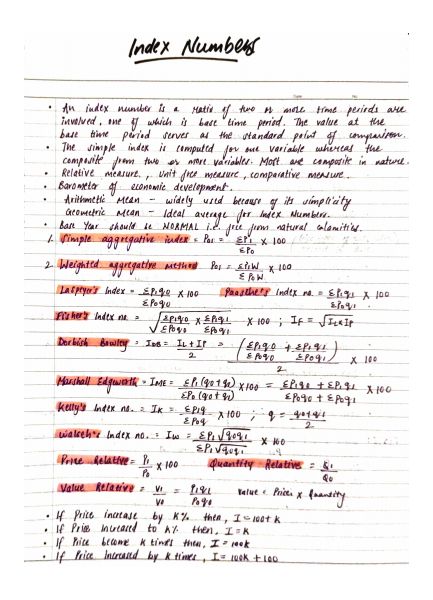 Index Numbers
• An index number is a ratio of two or more time periods are
involved, one of which is base time period. The value at the
base time period serves as the standard point of comparison.
• The simple index is computed for one variable whereas the
composite from two or more variables. Most are composite in nature.
• Relative measure, Unit free measure, comparative measure.
• Barometer of economic development.
• Arithmetic Mean - widely used because of its simplicity
Geometric Mean - Ideal average for Index Numbers.
• Base Year should be NORMAL i.e. free from natural calamities.
1. Simple aggregative index = P01 = ΣP1/ΣP0 X 100
2. Weighted aggregative method P01 = ΣP1W/ΣP0W X 100
Laspeyre's Index = ΣP1q0/ΣP0q0 X 100 Paasche's Index no. = ΣP1q1/ΣP0q1 X 100
Fisher's Index no. = √(ΣP1q0/ΣP0q0 X ΣP1q1/ΣP0q1) X 100 ; IF = √IL×IP
Dorbish Bowley = IDB = IL + IP/2 = (ΣP1q0/ΣP0q0 + ΣP1q1/ΣP0q1)/2 X 100
Marshall Edgeworth = IME = ΣP1(q0+q1)/ΣP0(q0+q1) X 100 = ΣP1q0 + ΣP1q1/ΣP0q0 + ΣP0q1 X 100
Kelly's Index no. = IK = ΣP1q/ΣP0q X 100 ; q = q0+q1/2
Walsch's Index no. = IW = ΣP1√q0q1/ΣP1√q0q1 X 100
Price Relative = P1/P0 X 100 Quantity Relative = Q1/Q0
Value Relative = V1/V0 = P1q1/P0q0 Value = Price x Quantity
• If Price increase by K% then, I = 100+K
• If Price increased to K% then, I = K
• If Price become K times then, I = 100K
• If Price Increased by K times, I = 100K + 100